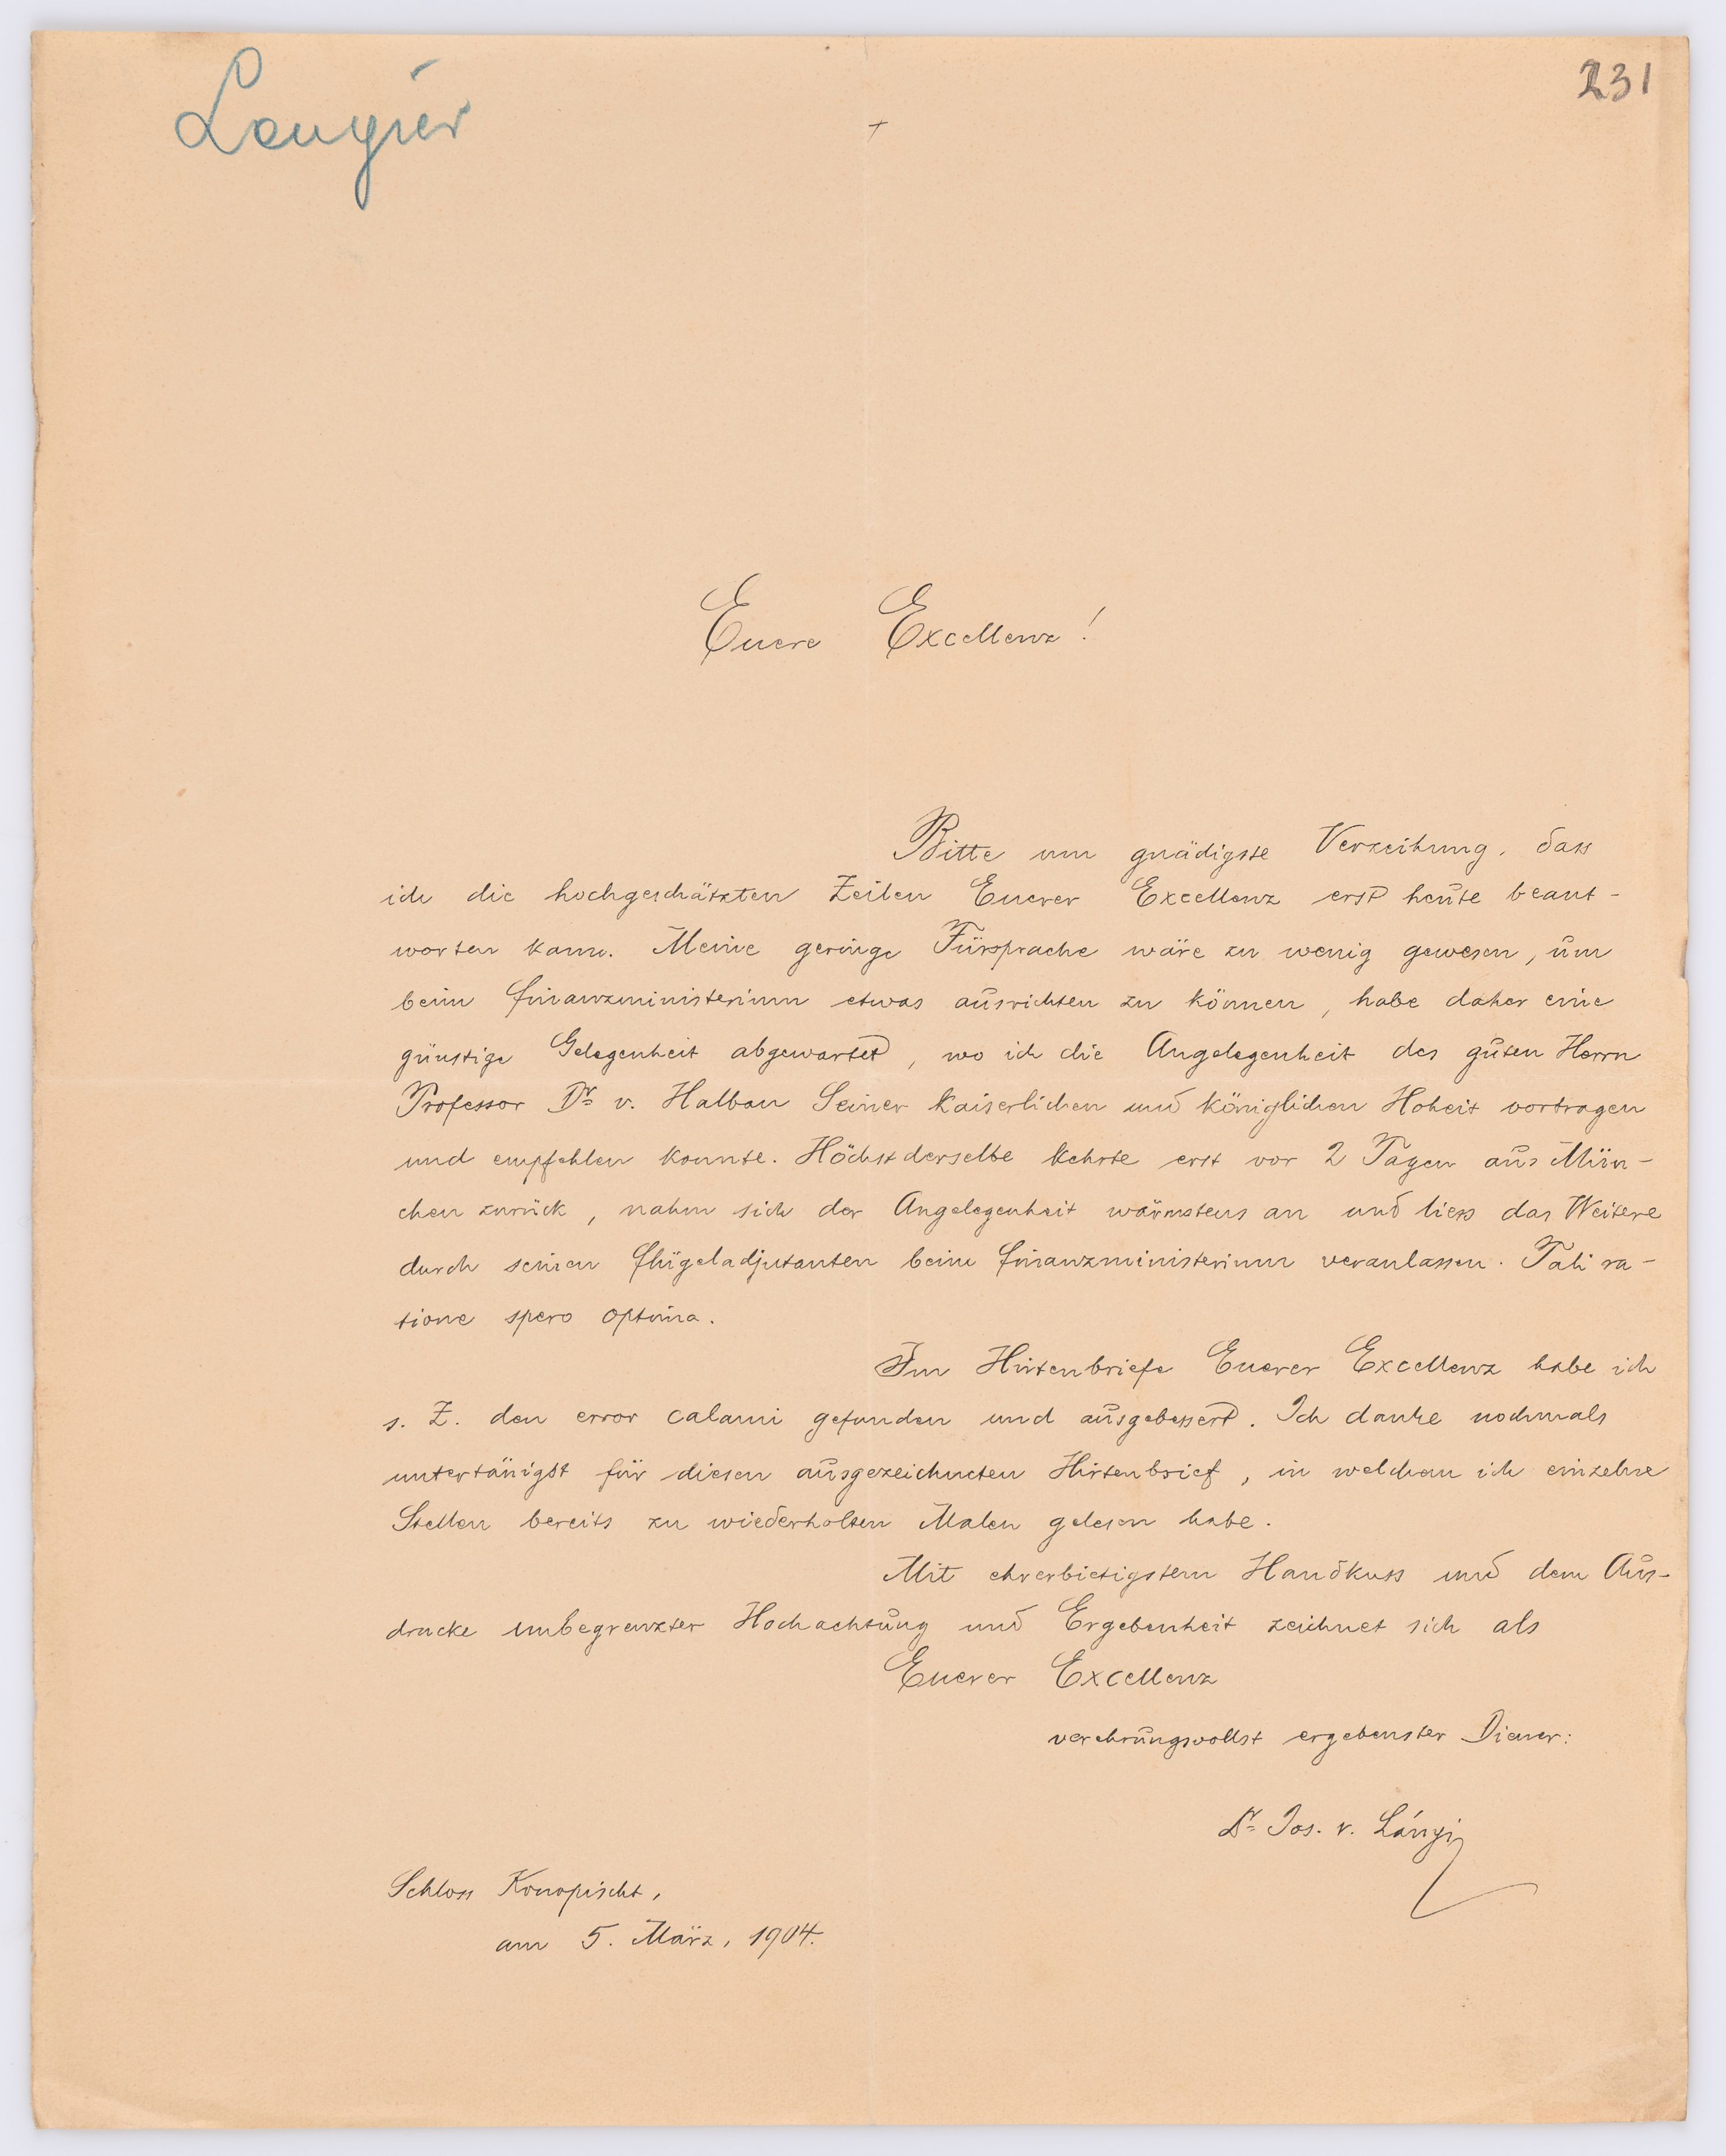 231
+
Euere Excellenz!
Bitte um gnädigste Verzeihung, dass
ich die hochgeschätzten Zeilen Euerer Excellenz erst heute beant-
worten kann. Meine geringe Fürsprache wäre zu wenig gewesen, um
beim Finanzministerium etwas ausrichten zu können, habe daher eine
günstige Gelegenheit abgewartet, wo ich die Angelegenheit des guten Herrn
Professor Dr v. Halban Seiner kaiserlichen und königlichen Hoheit vortragen
und empfehlen konnte. Höchstderselbe kehrte erst vor 2 Tagen aus Mün-
chen zurück, nahm sich der Angelegenheit wärmstens an und liess das Weitere
durch seinen Flügeladjutanten beim Finanzministerium veranlassen. Tali ra-
tione spero optima.
Im Hirtenbriefe Euerer Excellenz habe ich
s. Z. den error calami gefunden und ausgebessert. Ich danke nochmals
untertänigst für diesen ausgezeichneten Hirtenbrief, in welchem ich einzelne
Stellen bereits zu wiederholten Malen gelesen habe.
Mit ehrerbietigstem Handkuss und dem Aus-
drucke unbegrenzter Hochachtung und Ergebenheit zeichnet sich als
Euerer Excellenz
verehrungsvollst ergebenster Diener:
Dr Jos. v. Lányi
Schloss Konopischt,
am 5. März, 1904.